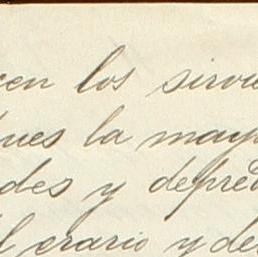 cen los sirvie
ues la mayo
des y depred
l erario y de